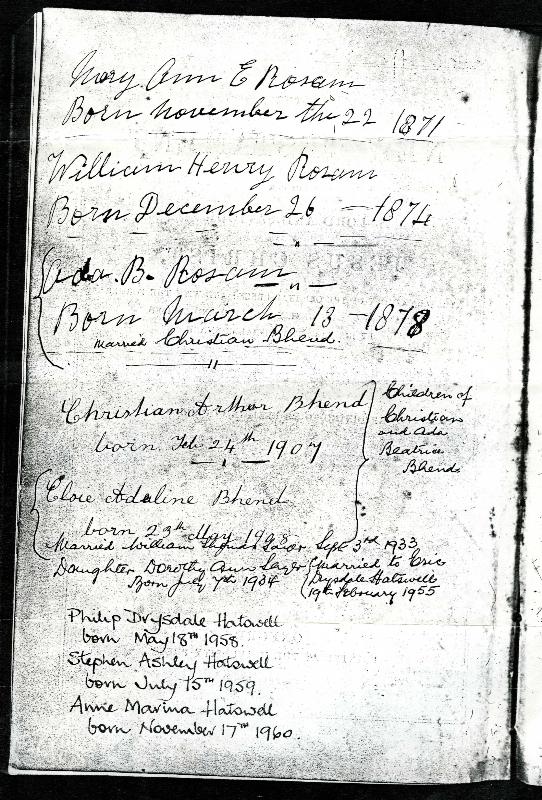 Mary Ann E Rosam
Born November the 22 1871
William Henry Rosam
Born December 26 - 1874
Ada. B. Rosam
Born March 13 - 1878
Married Christian Bhend.
Christian Arthur Bhend
born. Feb 24th 1907
Children of
Christian
and Ada
Beatrice
Bhend
Eloie Adaline Bhend
born 23th May 1908
Married William Sept 3rd 1933
Daughter Dorothy Ann Sayer
Born July 7th 1934
Married to Eric
Drysdale Hatswell
19th February 1955
Philip Drysdale Hatswell
born May 18TH 1958.
Stephen Ashley Hatswell
born July 15TH 1959.
Anne Marina Hatswell
born November 17TH 1960.